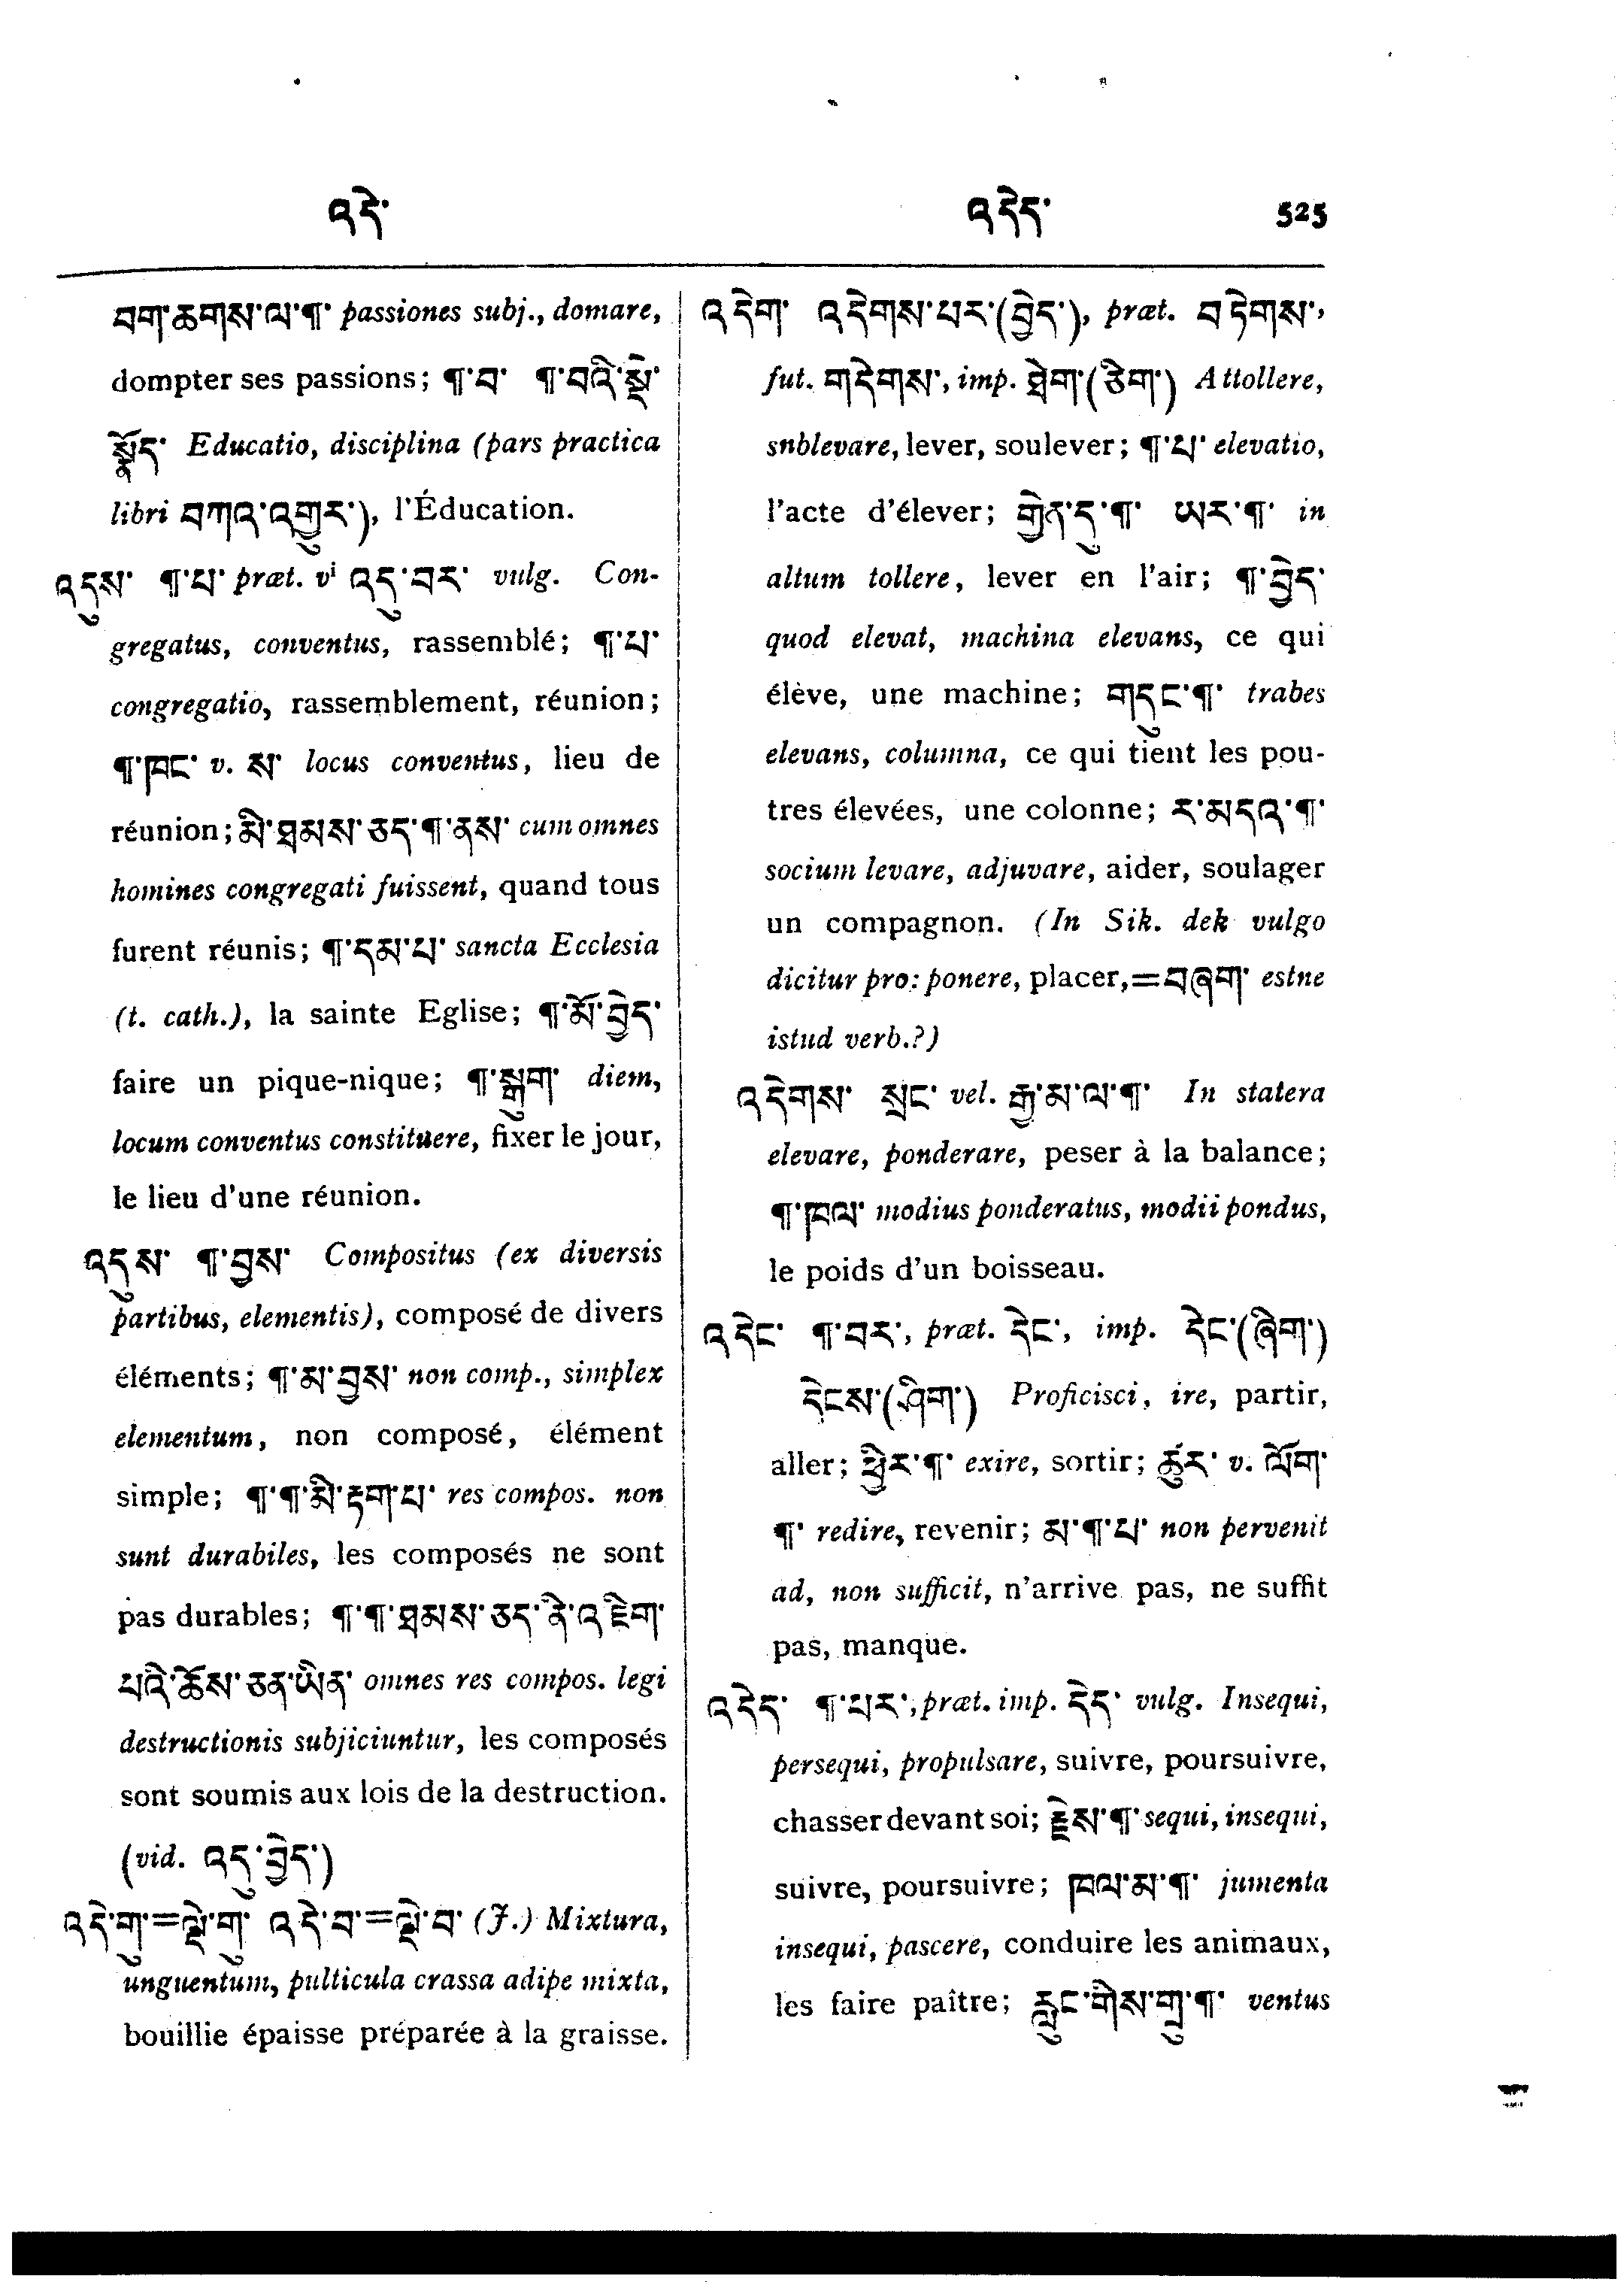 འདེ་
འདེད་ 525
བག་ཆགས་ལ་¶་ passiones subj., domare,
dompter ses passions; ¶་བ་ ¶་བའི་སྡེ་
སྣོད་ Educatio, disciplina (pars practica
libri བཀའ་འགྱུར་), l'Éducation.
འདུས་ ¶་པ་ præt. vi འདུ་བར་ vulg. Con-
gregatus, conventus, rassemblé; ¶་པ་
congregatio, rassemblement, réunion;
¶་ཁང་ v. ས་ locus conventus, lieu de
réunion; མི་ཐམས་ཅད་¶་ནས་ cum omnes
homines congregati fuissent, quand tous
furent réunis; ¶་དམ་པ་ sancta Ecclesia
(t. cath.), la sainte Eglise; ¶་མོ་བྱེད་
faire un pique-nique; ¶་སྒྲུག་ diem,
locum conventus constituere, fixer le jour,
le lieu d'une réunion.
འདུས་ ¶་བྱས་ Compositus (ex diversis
partibus, elementis), composé de divers
éléments; ¶་མ་བྱས་ non comp., simplex
elementum, non composé, élément
simple; ¶་¶་མི་རྟག་པ་ res compos. non
sunt durabiles, les composés ne sont
pas durables; ¶་¶་ཐམས་ཅད་ནི་འཇིག་
པའི་ཆོས་ཅན་ཡིན་ omnes res compos. legi
destructionis subjiciuntur, les composés
sont soumis aux lois de la destruction.
(vid. འདུ་བྱེད་)
འདེ་གུ་=ལྡེ་གུ་ འདེ་བ་=ལྡེ་བ་ (J.) Mixtura,
unguentum, pulticula crassa adipe mixta,
bouillie épaisse préparée à la graisse.
འདེག་ འདེགས་པར་(བྱེད་), præt. བཏེགས་,
fut. གདེགས་, imp. ཐེག་(ཅིག་) Attollere,
snblevare, lever, soulever; ¶་པ་ elevatio,
l'acte d'élever; གྱེན་དུ་¶་ ཡར་¶་ in
altum tollere, lever en l'air; ¶་བྱེད་
quod elevat, machina elevans, ce qui
élève, une machine; གདུང་¶་ trabes
elevans, columna, ce qui tient les pou-
tres élevées, une colonne; ར་མདའ་¶་
socium levare, adjuvare, aider, soulager
un compagnon. (In Sik. dek vulgo
dicitur pro: ponere, placer,=བཞག་ estne
istud verb.?)
འདེགས་ སྲང་ vel. རྒྱ་མ་ལ་¶་ In statera
elevare, ponderare, peser à la balance;
¶་ཁལ་ modius ponderatus, modii pondus,
le poids d'un boisseau.
འདེང་ ¶་བར་, præt. དེང་, imp. དེང་(ཞིག་)
དེངས་(ཤིག་) Proficisci, ire, partir,
aller; ཕྱིར་¶་ exire, sortir; ཚུར་ v. ལོག་
¶་ redire, revenir; མ་¶་པ་ non pervenit
ad, non sufficit, n'arrive pas, ne suffit
pas, manque.
འདེད་ ¶་པར་, præt. imp. དེད་ vulg. Insequi,
persequi, propulsare, suivre, poursuivre,
chasser devant soi; རྗེས་¶་ sequi, insequi,
suivre, poursuivre; ཁལ་མ་¶་ jumenta
insequi, pascere, conduire les animaux,
les faire paître; རླུང་གིས་གྲུ་¶་ ventus